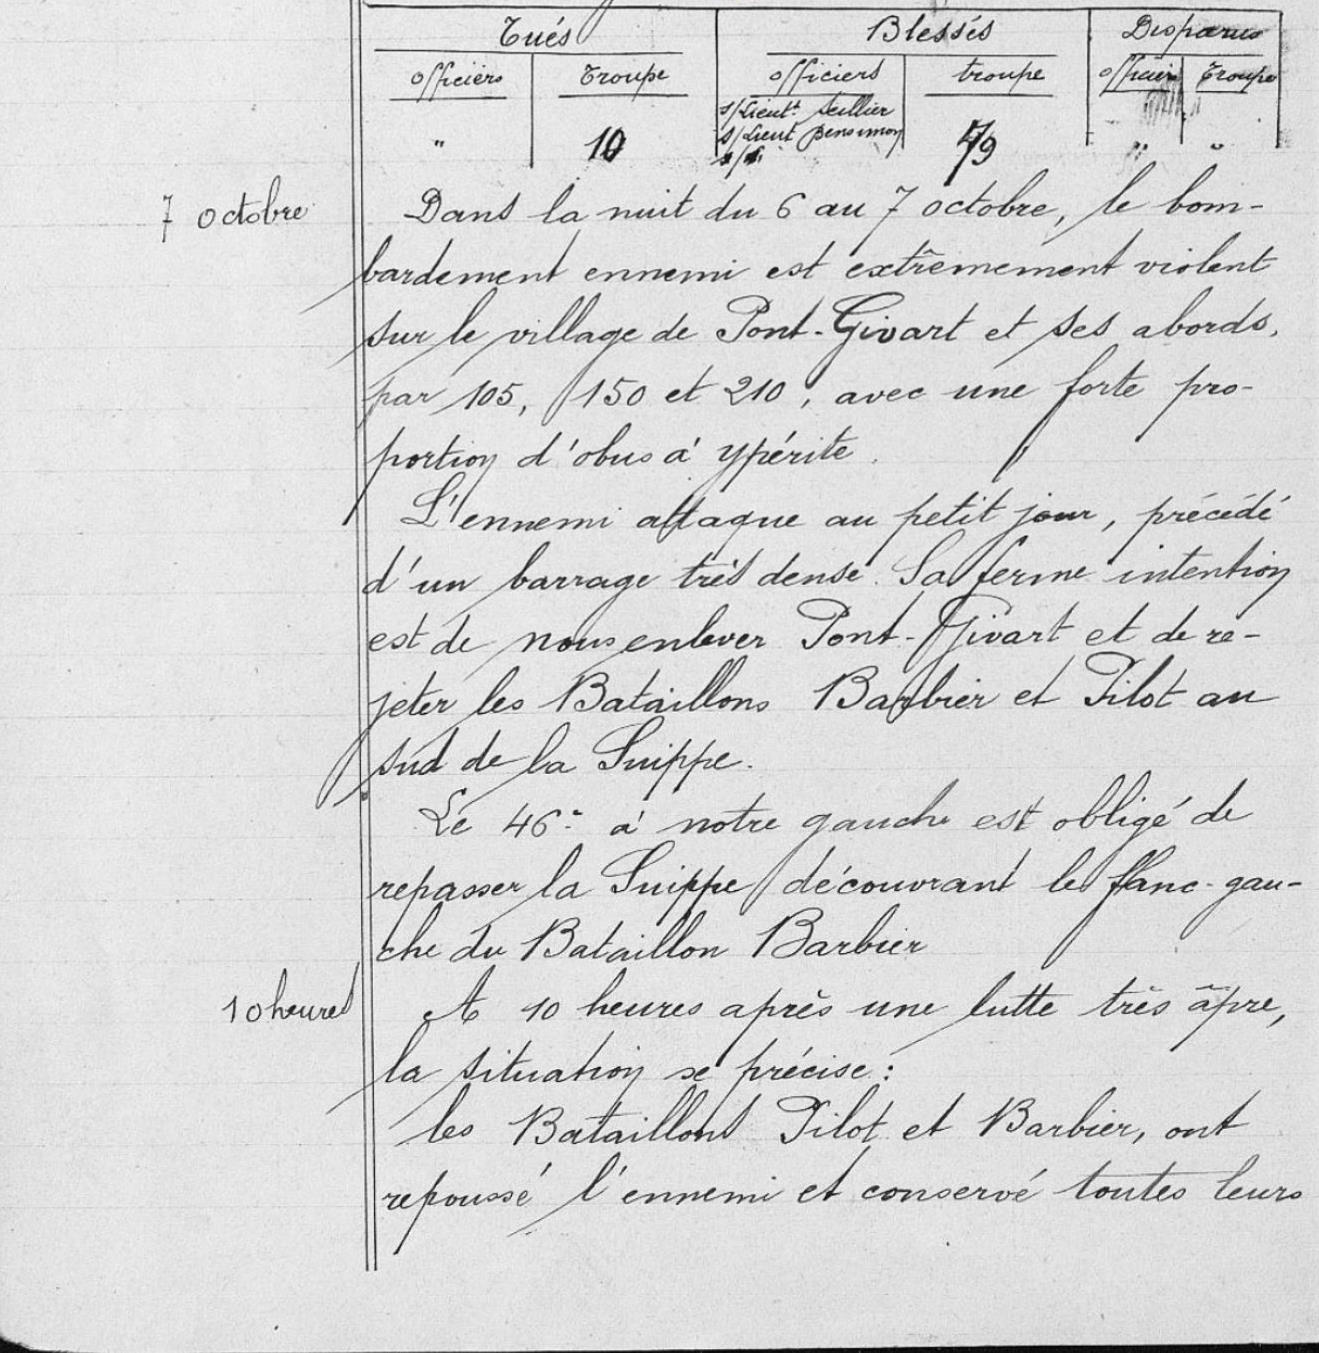 Tués Blessés Disparus
Officiers Troupe officiers troupe officier Troupe
s/Lieutt Seillier
" 10 s/Lieut Bensimon 79 " "
7 octobre Dans la nuit du 6 au 7 octobre, le bom-
bardement ennemi est extrêmement violent
sur le village de Pont-Givart et ses abords,
par 105, 150 et 210, avec une forte pro-
portion d'obus à ypérite.
L'ennemi attaque au petit jour, précédé
d'un barrage très dense. Sa ferme intention
est de nous enlever Pont-Givart et de re-
jeter les Bataillons Barbier et Pilot au
sud de la Suippe.
Le 46e à notre gauche est obligé de
repasser la Suippe découvrant le flanc-gau-
che du Bataillon Barbier
10 heures A 10 heures après une lutte très âpre,
la situation se précise :
les Bataillons Pilot et Barbier, ont
repoussé l'ennemi et conservé toutes leurs